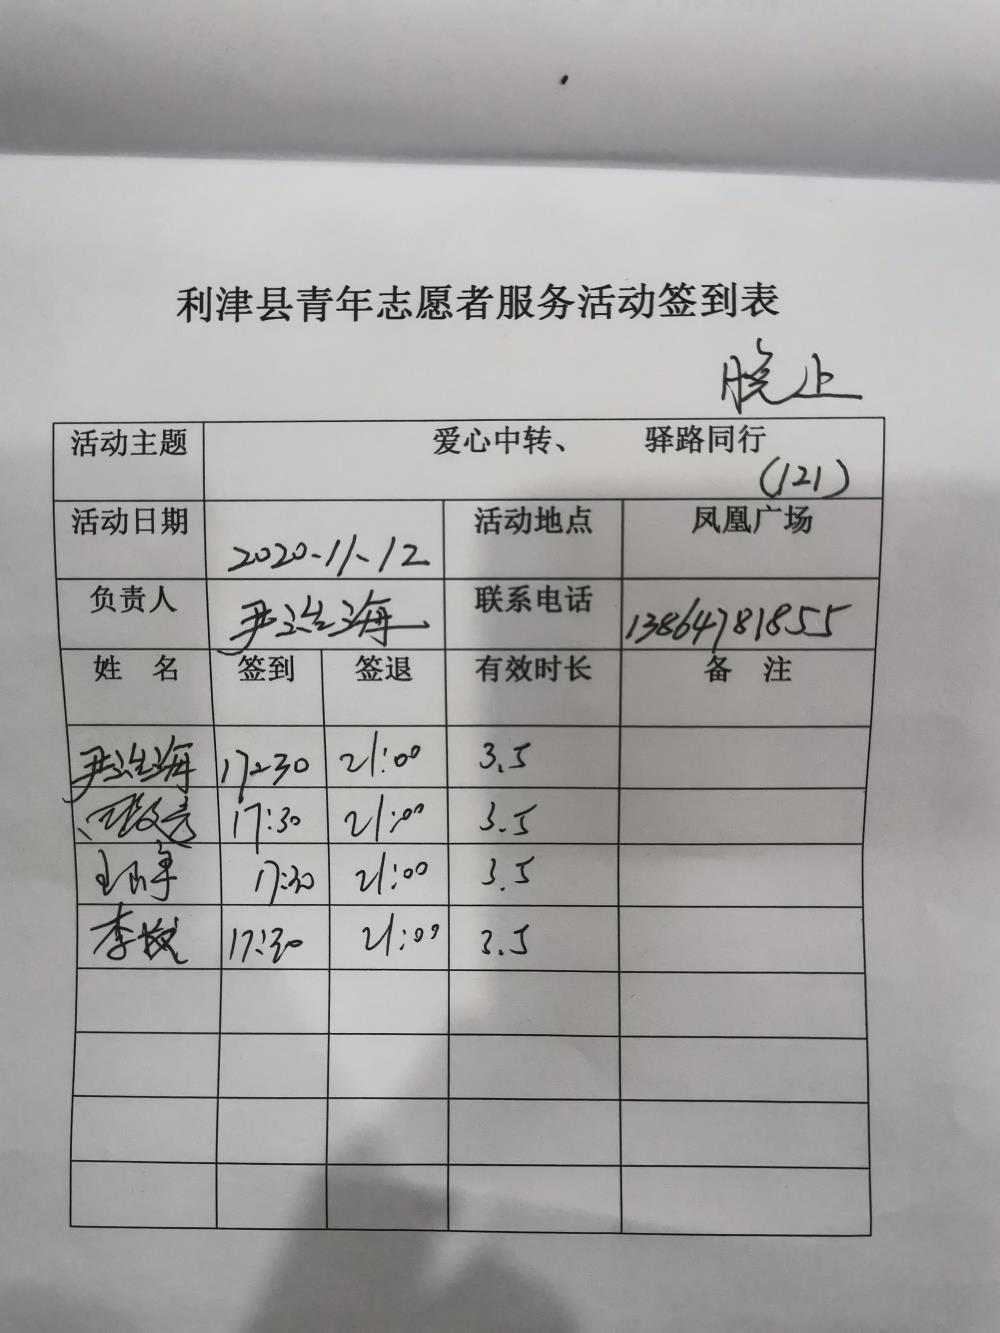 利津县青年志愿者服务活动签到表
晚上
活动主题 爱心中转、 驿路同行
(121)
活动日期 2020.11.12 活动地点 凤凰广场
负责人 尹浩海 联系电话 13864781855
姓 名 签到 签退 有效时长 备 注
尹浩海 17:30 21:00 3.5
17:30 21:00 3.5
17:30 21:00 3.5
李 17:30 21:00 3.5